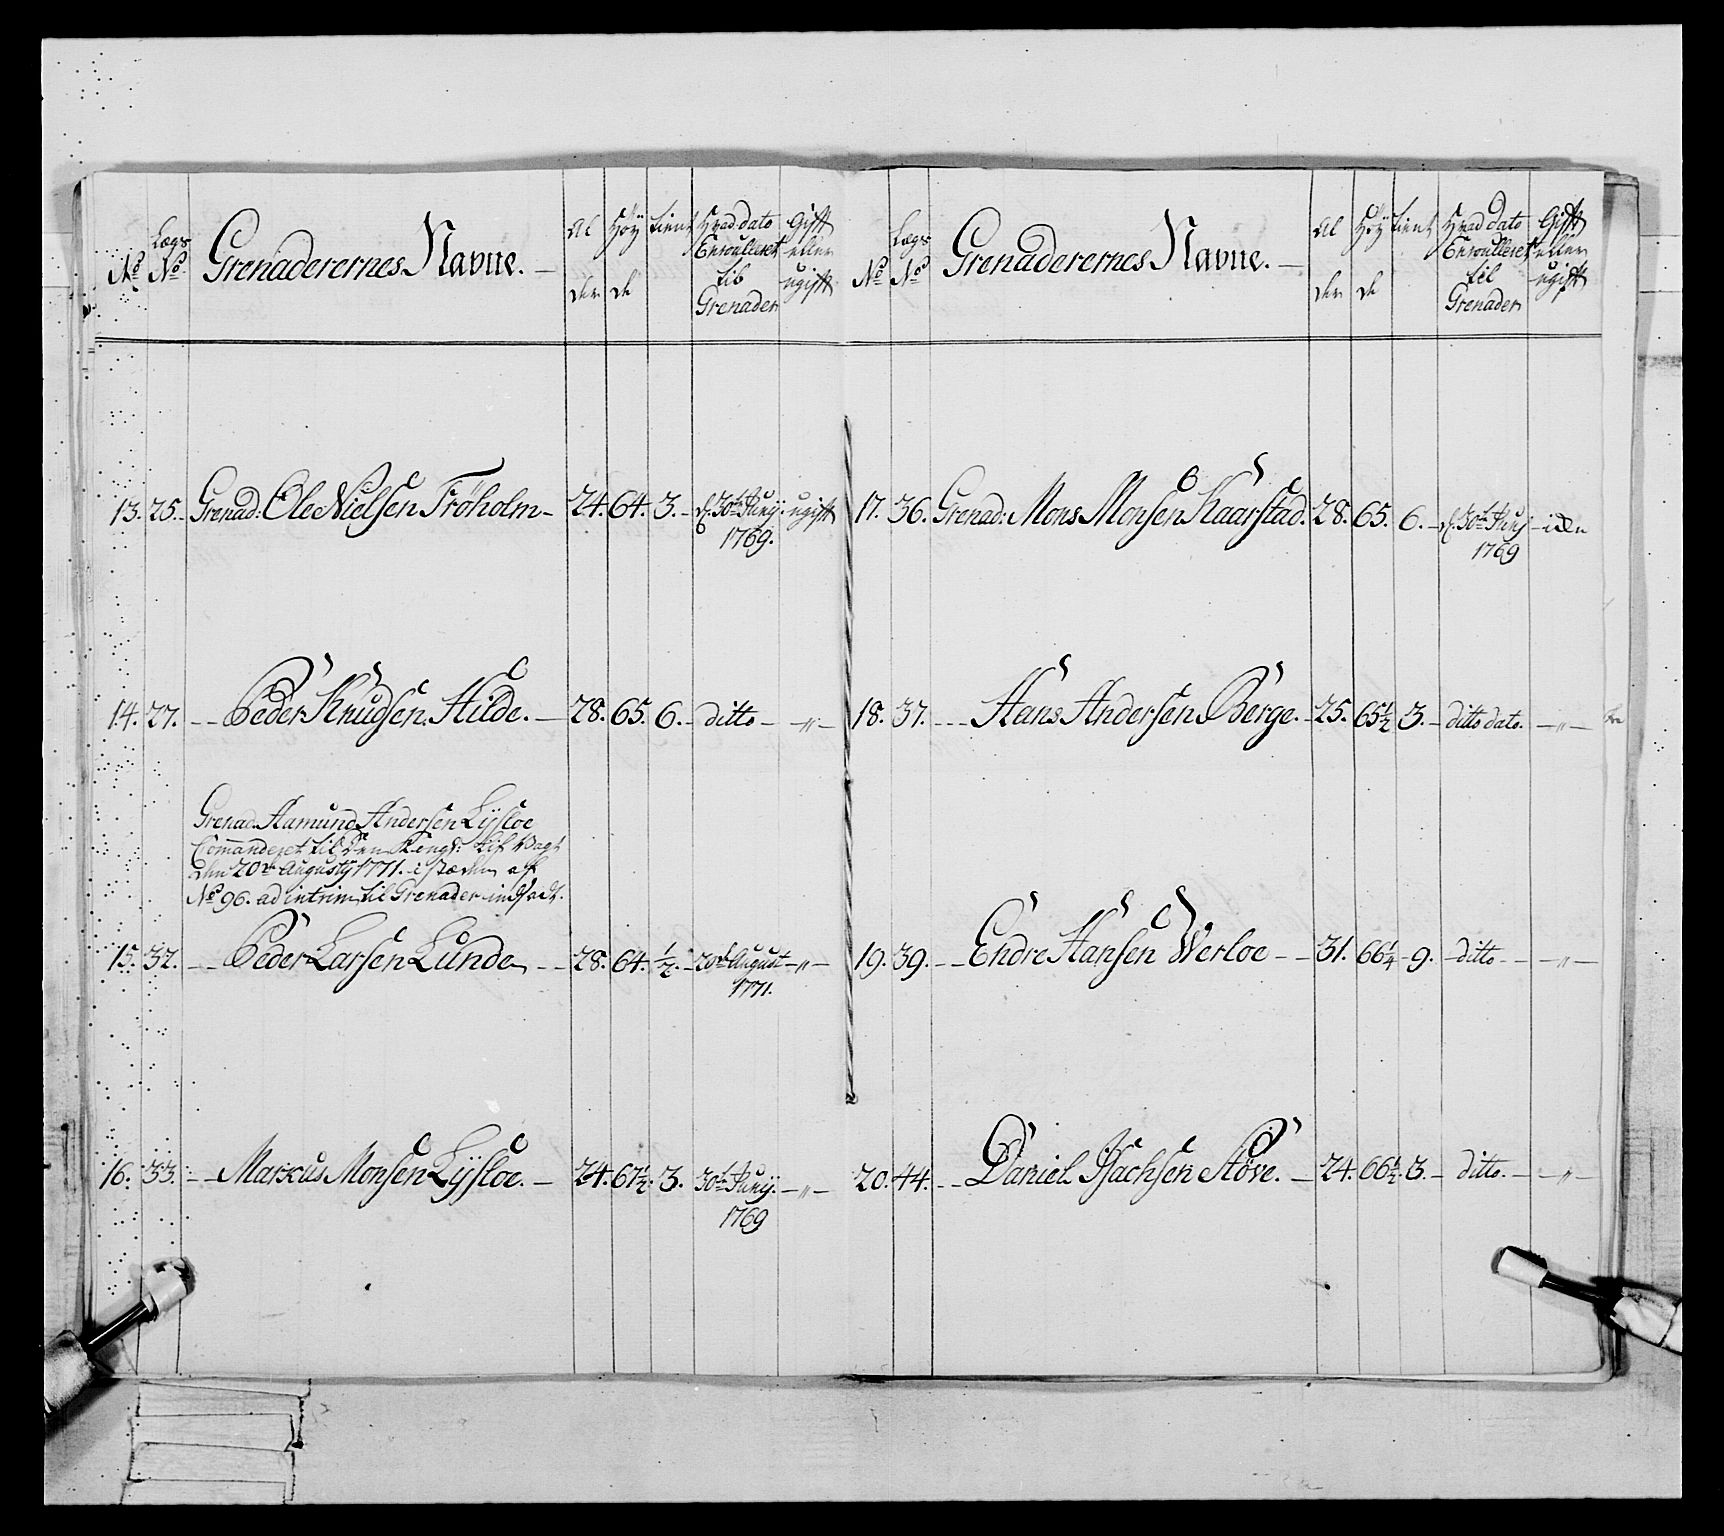 No Lægs No Grenaderernes Navne. Alder Høyde tient Hvad dato Enroulleret til Grenader Gift eller ugift
13. 25. Grenad: Ole Nielsen Fröholm 24. 64. 3. d. 30te Junij 1769. ugift
14. 27. Peder Knudsen Hilde. 28. 65. 6. ditto „
Grenad. Aamund Andersen Lÿsloe
Commanderet til den Kongl: Lif Vagt
den 20de Augustij 1771. i stæden af
No 96. ad intrim til Grenader indsadt.
15. 32. Peder Larsen Lunde 28. 64. ½. 20de August 1771. „
16. 33. Markus Monsen Lÿsloe. 24. 67½. 3. 30te Junij. 1769 „
No Lægs No Grenaderernes Navne. Alder Høyde tient Hvad dato Enroulleret til Grenader Gift eller ugift
17. 36. Grenad: Mons Monsen Kaarstad. 28. 65. 6. d. 30te Junj 1769
18. 37. Hans Andersen Berge. 25. 65½ 3. ditto dato. „
19. 39. Endre Hansen Werloe 31. 66¼ 9. ditto „
20. 44. Daniel Isachsen Støve. 24. 66½. 3. ditto. „